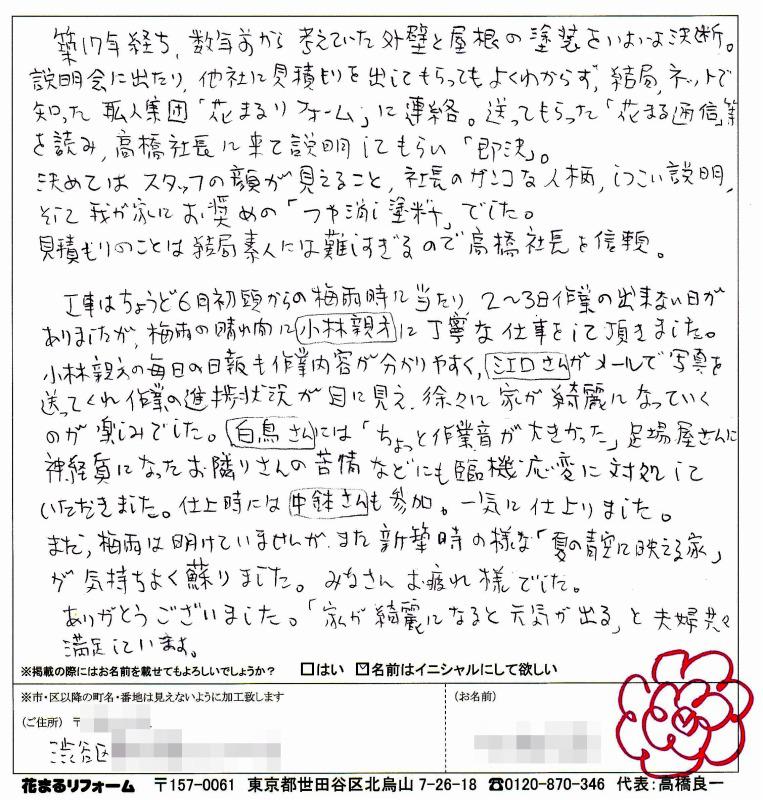 築17年経ち，数年前から考えていた外壁と屋根の塗装をいよいよ決断。
説明会に出たり，他社に見積もりを出してもらってもよくわからず，結局，ネットで
知った職人集団「花まるリフォーム」に連絡。送ってもらった「花まる通信」等
を読み，高橋社長に来て説明してもらい「即決」。
決めてはスタッフの顔が見えること，社長のガンコな人柄，しつこい説明，
そして我が家にお奨めの「つや消し塗料」でした。
見積もりのことは結局素人には難しすぎるので高橋社長を信頼。
工事はちょうど6月初頭からの梅雨時に当たり，2～3日作業の出来ない日が
ありましたが，梅雨の晴れ間に小林親方に丁寧な仕事をして頂きました。
小林親方の毎日の日報も作業内容が分かりやすく，江口さんがメールで写真を
送ってくれ作業の進捗状況が目に見え，徐々に家が綺麗になっていく
のが楽しみでした。白鳥さんには「ちょっと作業音が大きかった」足場屋さんに
神経質になったお隣りさんの苦情などにも臨機応変に対処して
いただきました。仕上時には中鉢さんも参加。一気に仕上りました。
まだ，梅雨は明けていませんが，また新築時の様な「夏の青空に映える家」
が気持ちよく蘇りました。みなさんお疲れ様でした。
ありがとうございました。「家が綺麗になると元気が出る」と夫婦共々
満足しています。
※掲載の際にはお名前を載せてもよろしいでしょうか？ □はい ☑名前はイニシャルにして欲しい
※市・区以降の町名・番地は見えないように加工致します
（お名前）
（ご住所）〒
渋谷区
花まるリフォーム 〒157-0061 東京都世田谷区北烏山 7-26-18 ☎0120-870-346 代表：高橋良一